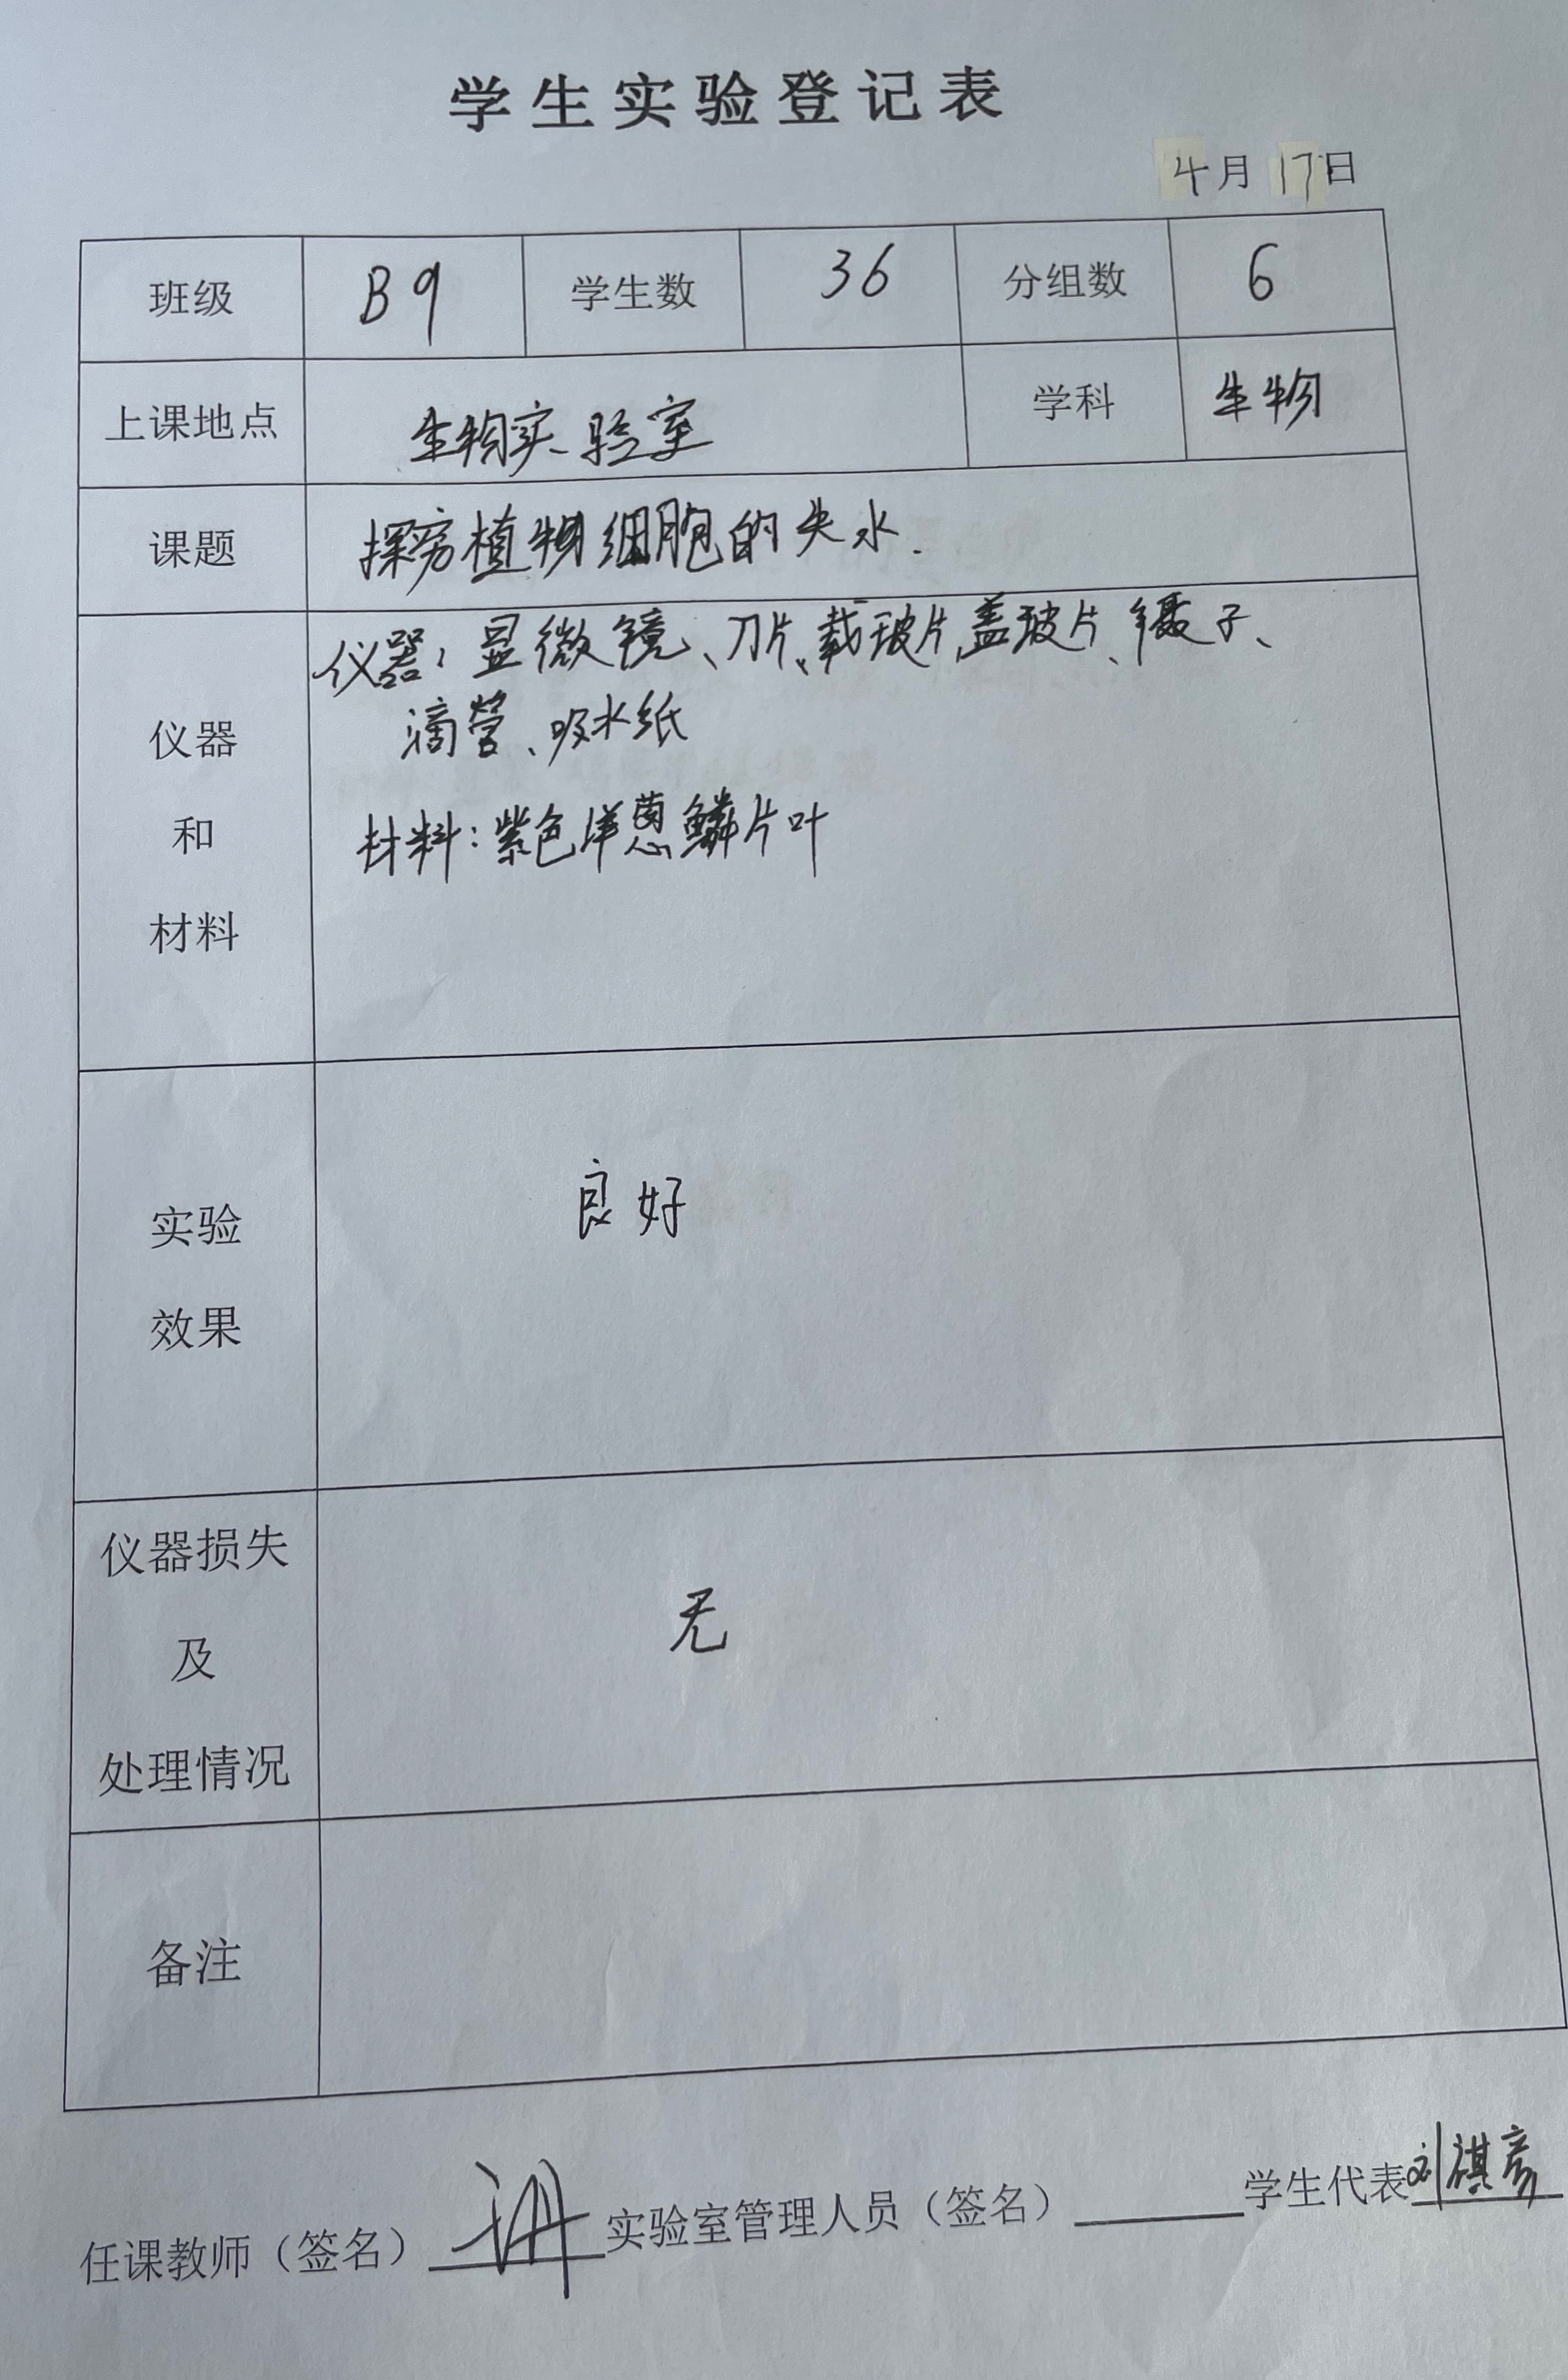 学生实验登记表
4月17日
班级 B9 学生数 36 分组数 6
上课地点 生物实验室 学科 生物
课题 探究植物细胞的失水.
仪器和材料
仪器:显微镜、刀片、载玻片、盖玻片、镊子、
滴管、吸水纸
材料:紫色洋葱鳞片叶
实验效果 良好
仪器损失及处理情况 无
备注
任课教师(签名) 实验室管理人员(签名) 学生代表 刘祺彦